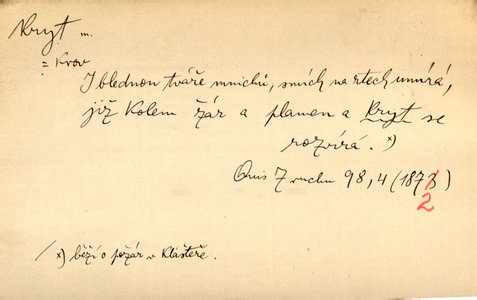 Kryt m.
= Krov
I blednou tváře mnichů, smích na rtech umírá,
již kolem žár a plamen a Kryt se
rozvírá. x)
Quis Z ruchu 98, 4 (1873)
2
x) běží o požár v Klášteře.